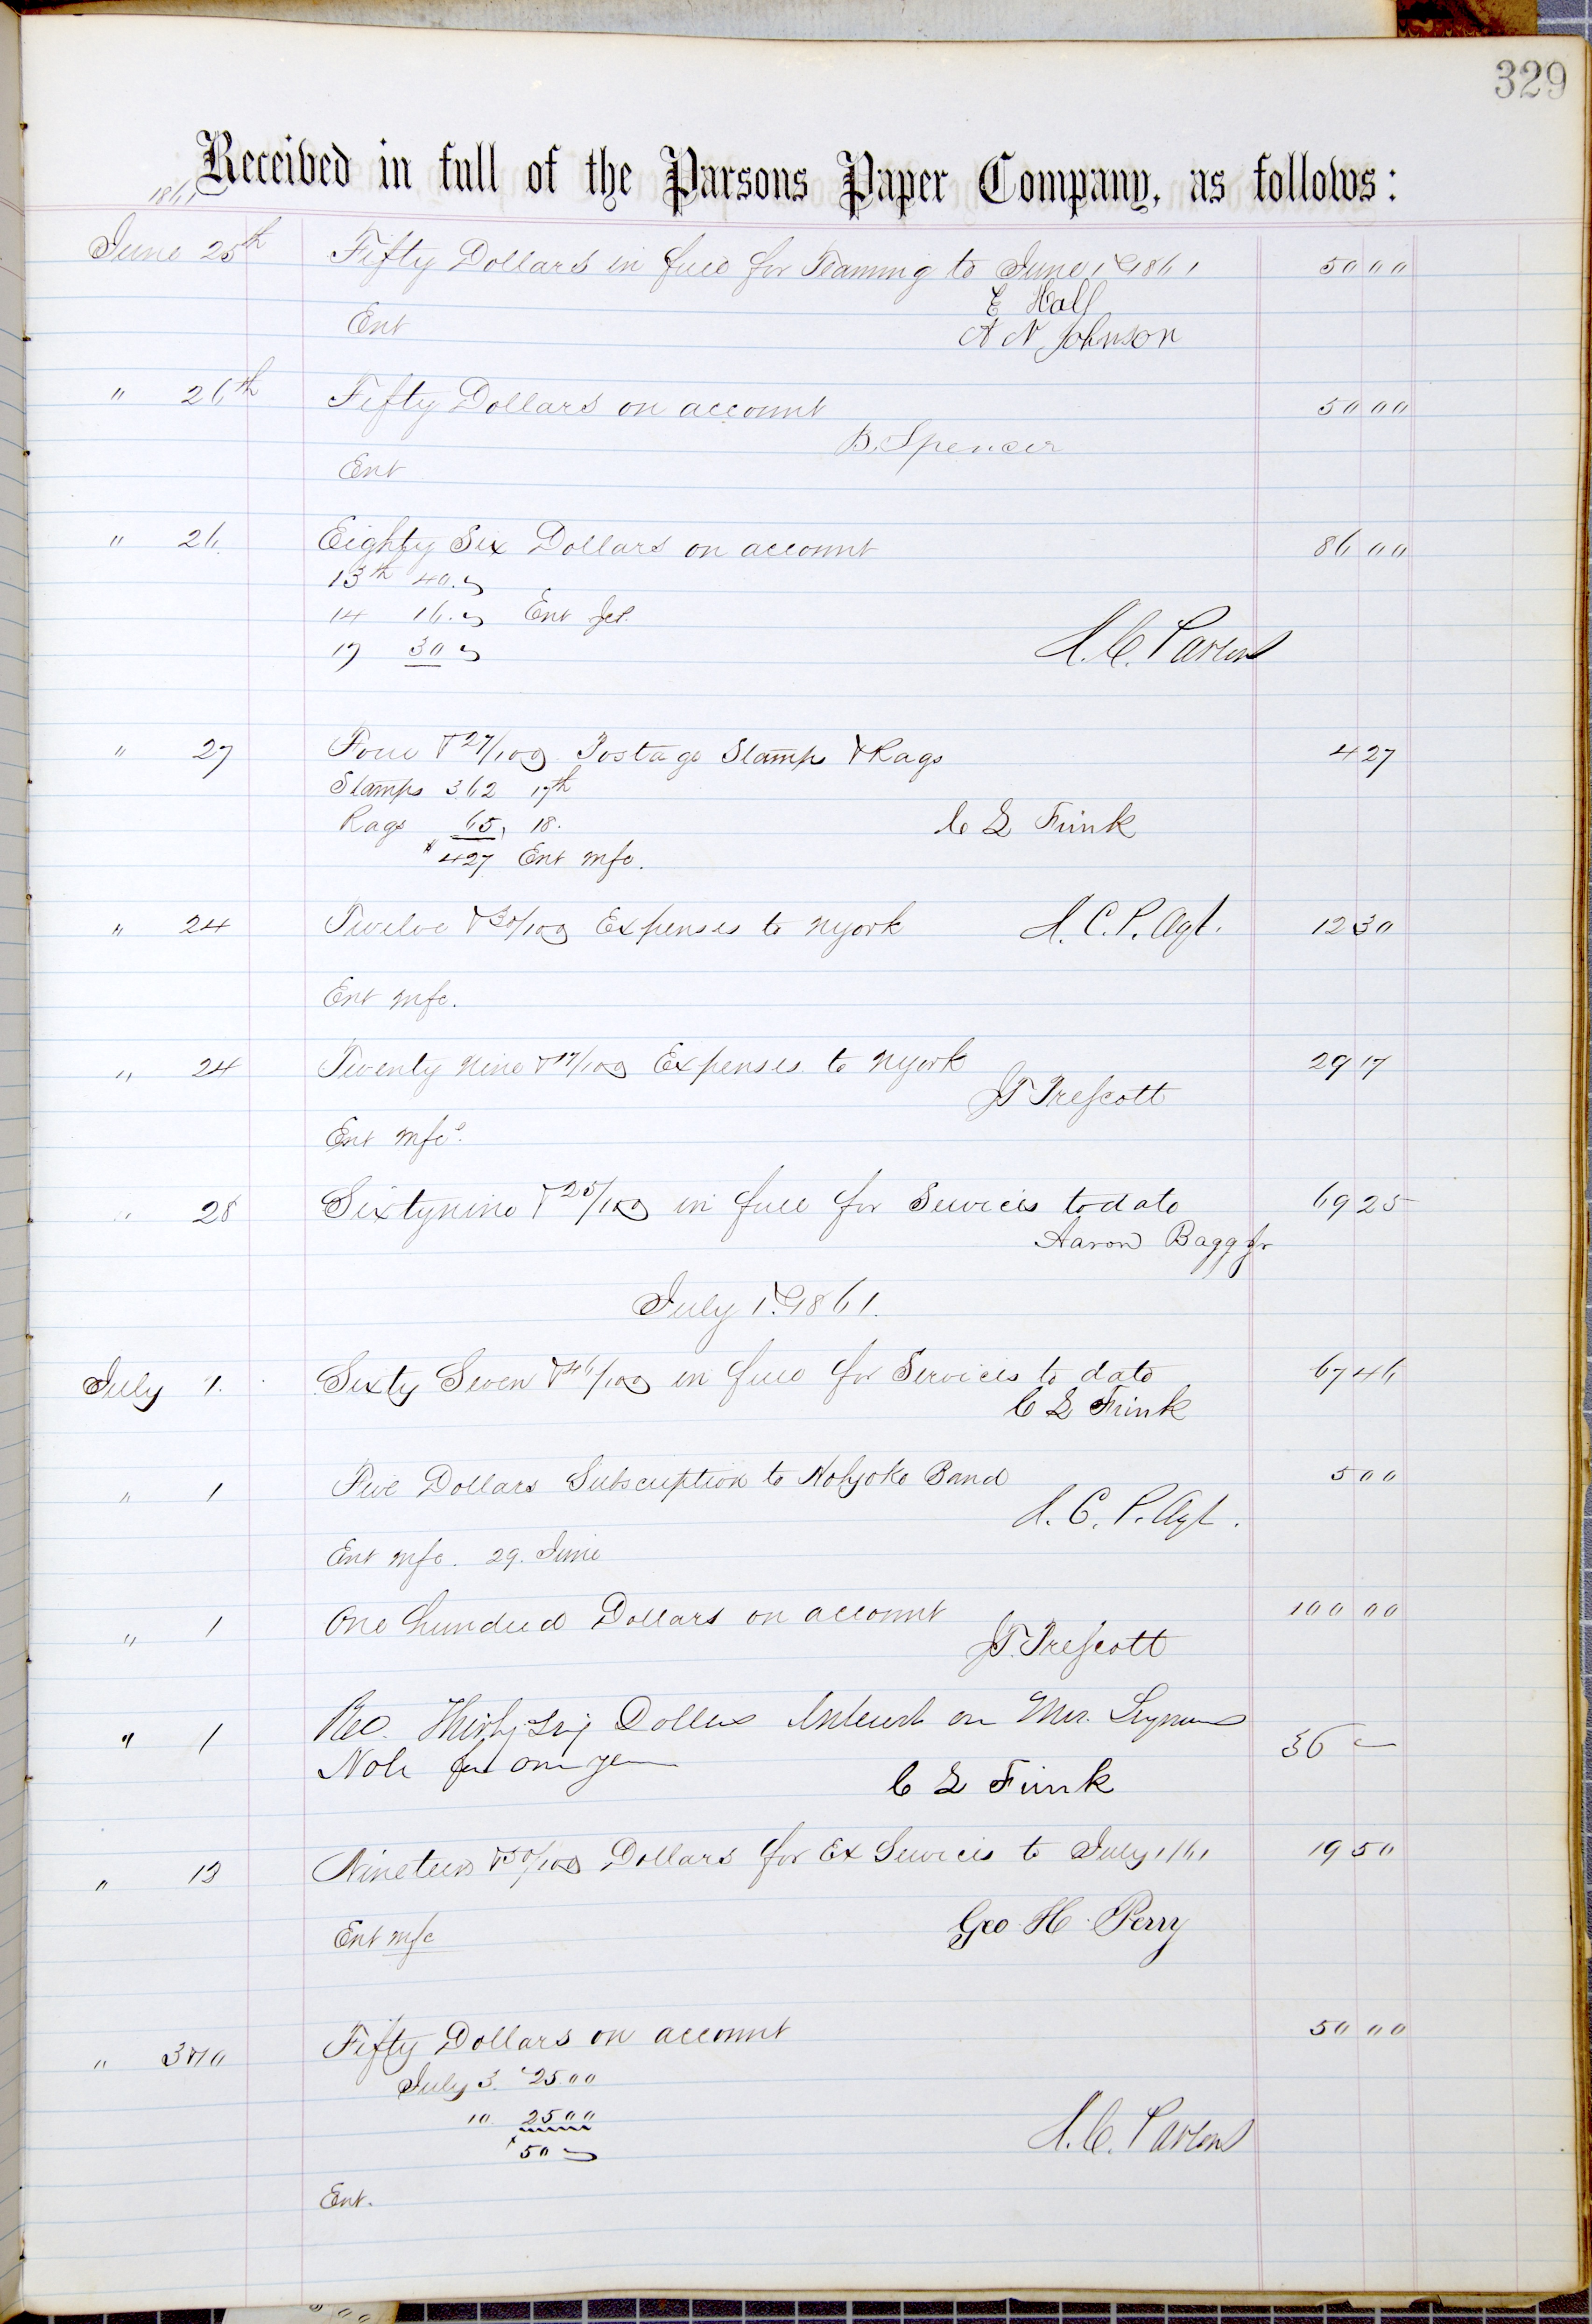 329
Received in full of the Parsons Paper Company, as follows:
1861
June 25th Fifty Dollars in full for Teaming to June 1, 1861 50 00
E Hall
Ent A N Johnson
" 26th Fifty Dollars on account 50 00
B. Spencer
Ent
" 26 Eighty Six Dollars on account 86 00
13th 40.
14 16. Ent
17 30 J. C. Parsons
" 27 Four & 27/100 Postage Stamps & Rags 4 27
Stamps 3.62 17th
Rags 65, 18. C L Frink
$ 4 27 Ent mfc.
" 24 Twelve & 30/100 Expenses to N York J. C. P. Agt. 12 30
Ent mfc.
" 24 Twenty Nine & 17/100 Expenses to N York 29 17
J T Prescott
Ent mfc.
" 28 Sixtynine & 25/100 in full for Services to date 69 25
Aaron Bagg Jr
July 1. 1861.
July 1. Sixty Seven & 46/100 in full for Services to date 67 46
C L Frink
" 1 Five Dollars Subscription to Holyoke Band 5 00
J. C. P. Agt.
Ent mfc. 29. June
" 1 One hundred Dollars on account 100 00
J T. Prescott
" 1 Rec. Thirty six Dollars Interest on Mrs. 36 —
Note for one year C L Frink
" 13 Nineteen & 50/100 Dollars for Ex Services to July 1/61 19 50
Ent mfc Geo H Perry
" 3 & 10 Fifty Dollars on account 50 00
July 3. 25 00
10. 25 00
50 J. C. Parsons
Ent.